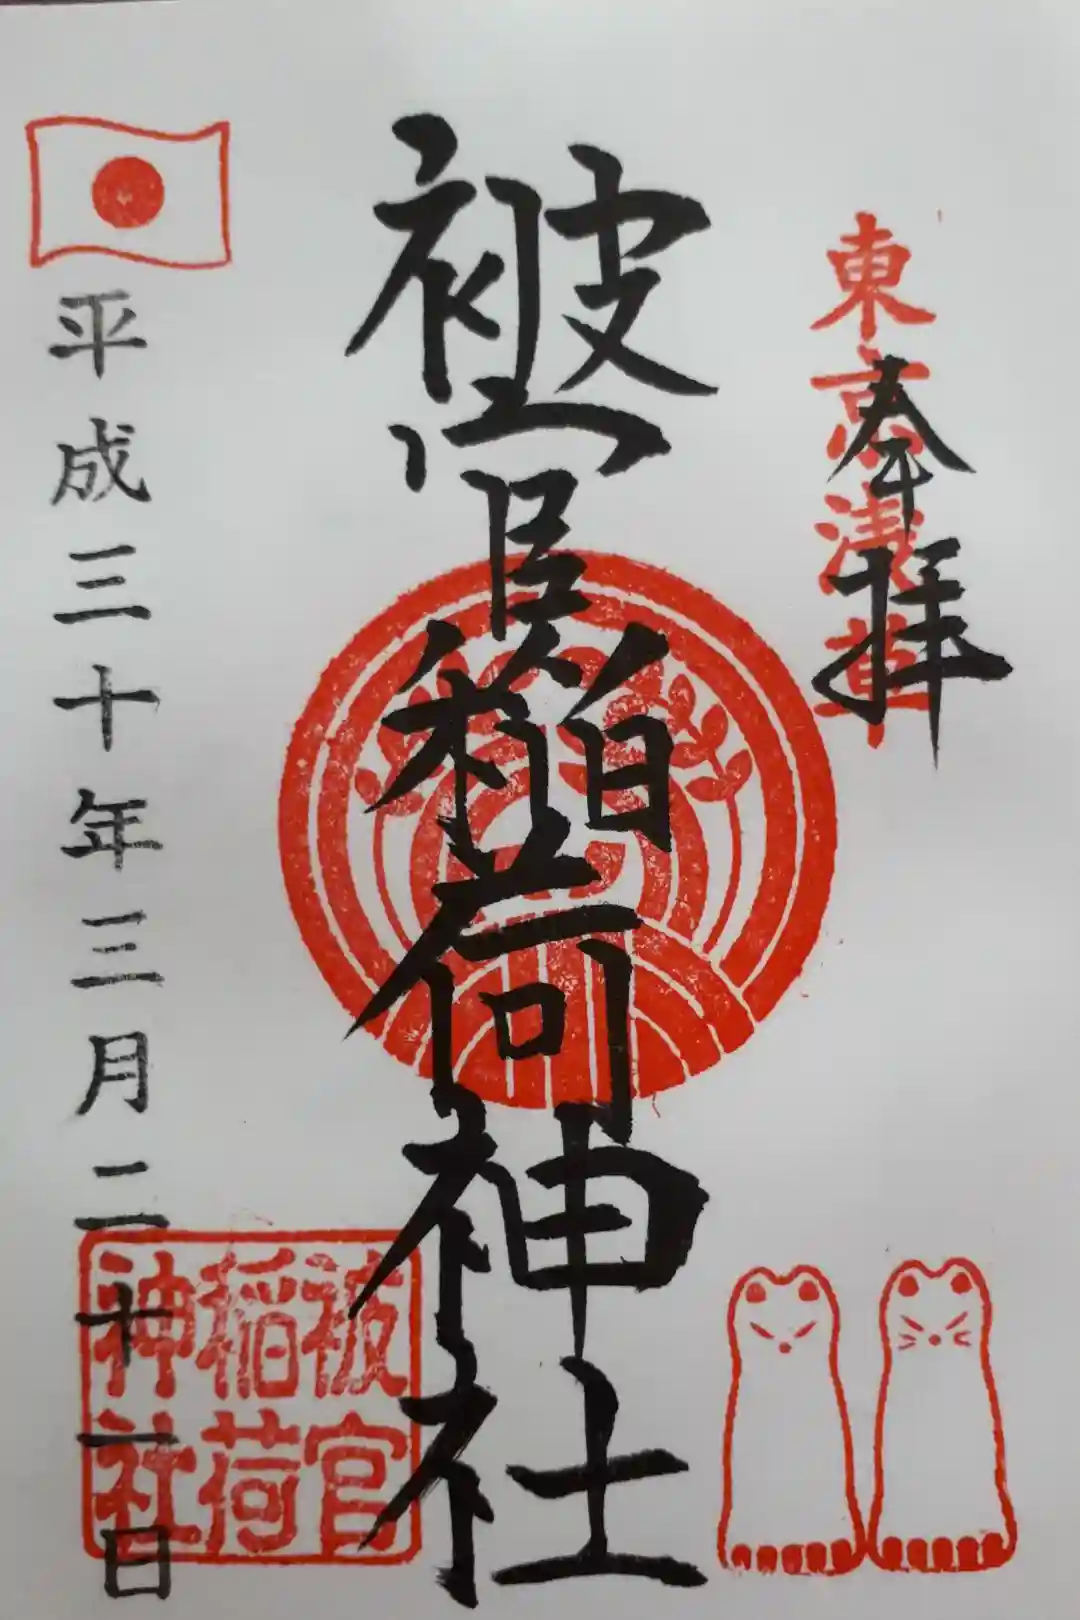 東京浅草
奉拝
被官稲荷神社
平成三十年三月二十一日
被官
稲荷
神社